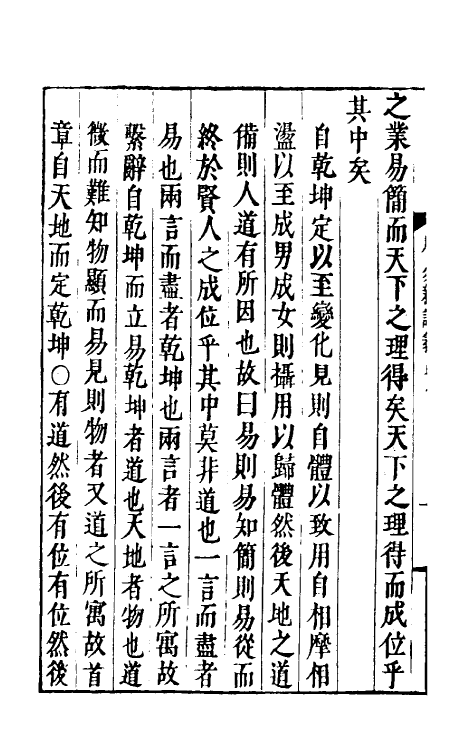 之業易簡而天下之理得矣天下之理得而成位乎
其中矣
自乾坤定以至變化見則自體以致用自相摩相
盪以至成男成女則攝用以歸體然後天地之道
備則人道有所因也故曰易則易知簡則易從而
終於賢人之成位乎其中莫非道也一言而盡者
易也兩言而盡者乾坤也兩言者一言之所寓故
繫辭自乾坤而立易乾坤者道也天地者物也道
微而難知物顯而易見則物者又道之所寓故首
章自天地而定乾坤○有道然後有位有位然後